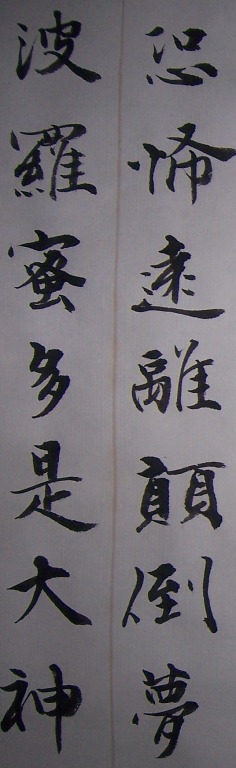 恐怖遠離顛倒夢
波羅蜜多是大神